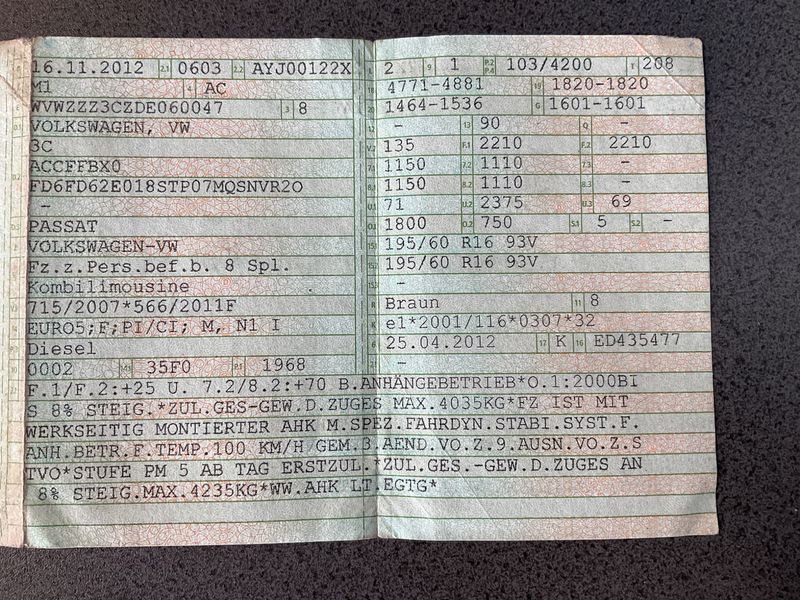 16.11.2012 2.1 0603 2.2 AYJ00122X
M1 4 AC
WVWZZZ3CZDE060047 3 8
VOLKSWAGEN, VW
3C
ACCFFBX0
FD6FD62E018STP07MQSNVR2O
-
PASSAT
VOLKSWAGEN-VW
Fz.z.Pers.bef.b. 8 Spl.
Kombilimousine
715/2007*566/2011F
EURO5;F;PI/CI; M, N1 I
Diesel
0002 35F0 P.1 1968
L 2 9 1 P.2 P.4 103/4200 T 208
18 4771-4881 19 1820-1820
20 1464-1536 G 1601-1601
12 - 13 90 Q -
V.7 135 F.1 2210 F.2 2210
7.1 1150 7.2 1110 7.3 -
8.1 1150 8.2 1110 8.3 -
U.1 71 U.2 2375 U.3 69
O.1 1800 O.2 750 S.1 5 S.2 -
15.1 195/60 R16 93V
15.2 195/60 R16 93V
15.3 -
R Braun 11 8
K e1*2001/116*0307*32
6 25.04.2012 17 K 16 ED435477
-
F.1/F.2:+25 U. 7.2/8.2:+70 B.ANHÄNGEBETRIEB*O.1:2000BI
S 8% STEIG.*ZUL.GES-GEW.D.ZUGES MAX.4035KG*FZ IST MIT
WERKSEITIG MONTIERTER AHK M.SPEZ.FAHRDYN.STABI.SYST.F.
ANH.BETR.F.TEMP.100 KM/H GEM.3.AEND.VO.Z.9.AUSN.VO.Z.S
TVO*STUFE PM 5 AB TAG ERSTZUL.*ZUL.GES.-GEW.D.ZUGES AN
8% STEIG.MAX.4235KG*WW.AHK LT.EGTG*